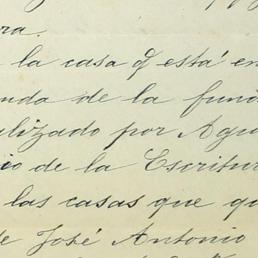 ra.
la casa q̃ está en
nda de la func
lizado por Agu
io de la Escritur
las casas que qu
de José Antonio